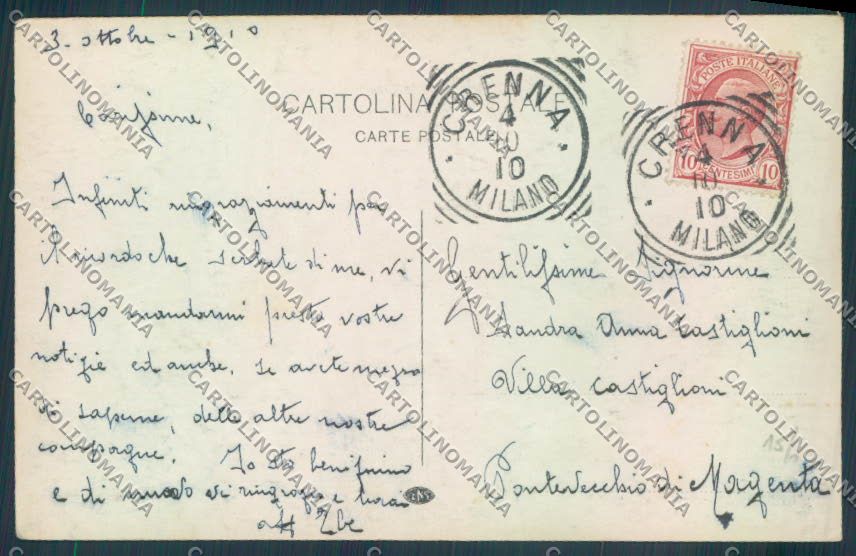 3 - ottobre - 1910
CARTOLINA POSTALE
CARTE POSTALE
Carissime,
Infiniti ringraziamenti per
il ricordo che serbate di me, vi
prego mandarmi presto vostre
notizie ed anche, se avete mezzo
di saperne, delle altre nostre
compagne. Io sto benissimo
e di nuovo vi ringrazio e
CRENNA
4
10
10
MILANO
POSTE ITALIANE
10 CENTESIMI 10
CRENNA
4
10
10
MILANO
Gentilissime Signorine
Sandra Anna Castiglioni
Villa Castiglioni
Pontevecchio di Magenta
CARTOLINOMANIA